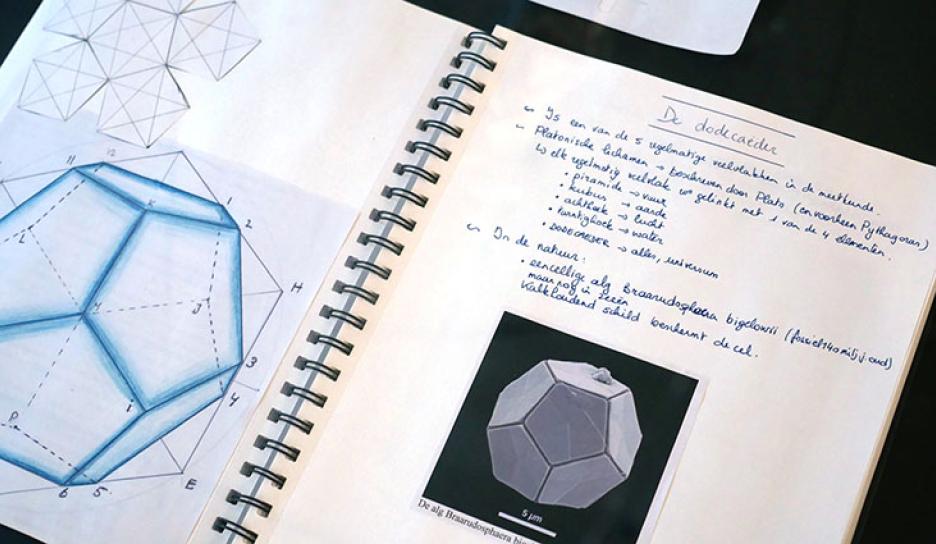 11 12
1
K
2
L
H
M
J
3
4
1
P
E
6 5
De dodecaëder
Is een van de 5 regelmatige veelvlakken in de meetkunde.
Platonische lichamen → beschreven door Plato (en voorheen Pythagoras)
↳ elk regelmatig veelvlak w gelinkt met 1 van de 4 elementen.
• piramide → vuur
• kubus → aarde
• achthoek → lucht
• twintighoek → water
• DODECAEDER → alles, universum
In de natuur:
• eencellige alg Braarudosphaera bigelowii (fossiel 140 milj j. oud)
maar nog in zeeën
Kalkhoudend schild beschermt de cel.
5 μm
De alg Braarudosphaera big